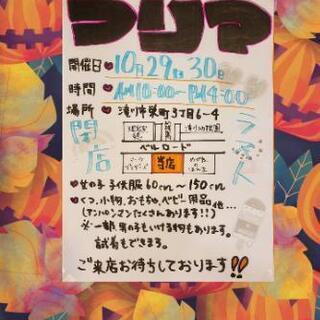 フリマ
開催日♥10月29日30日
時間♥AM10:00〜PM4:00
場所♥滝川市栄町3丁目6-4
閉店
ラスト
ベルロード
当店
♥女の子 子供服 60cm〜150cm
♥くつ、小物、おもちゃ、ベビー用品 他…
(アンパンマンたくさんあります!!)
※一部、男の子もいける物もあります。
試着もできます。
ご来店お待ちしております!!